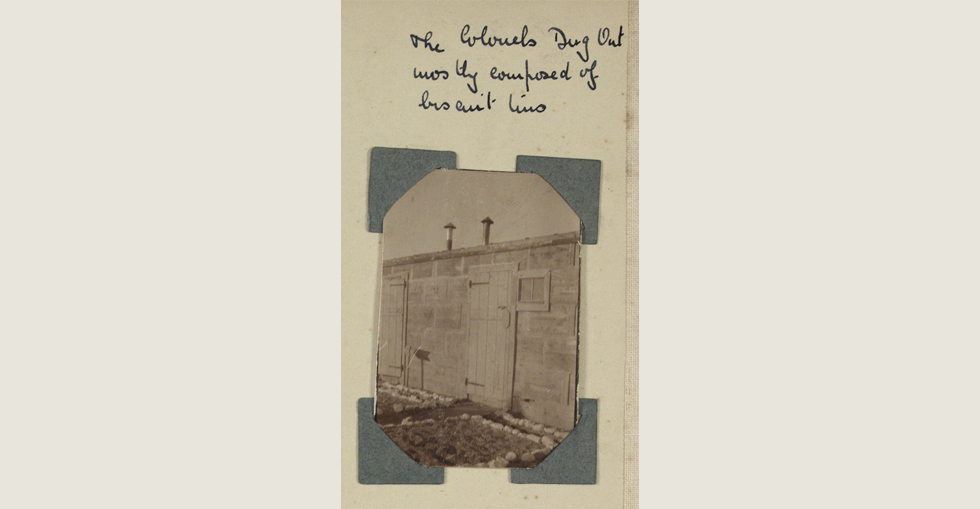 The Colonels Dug Out
mostly composed of
biscuit tins